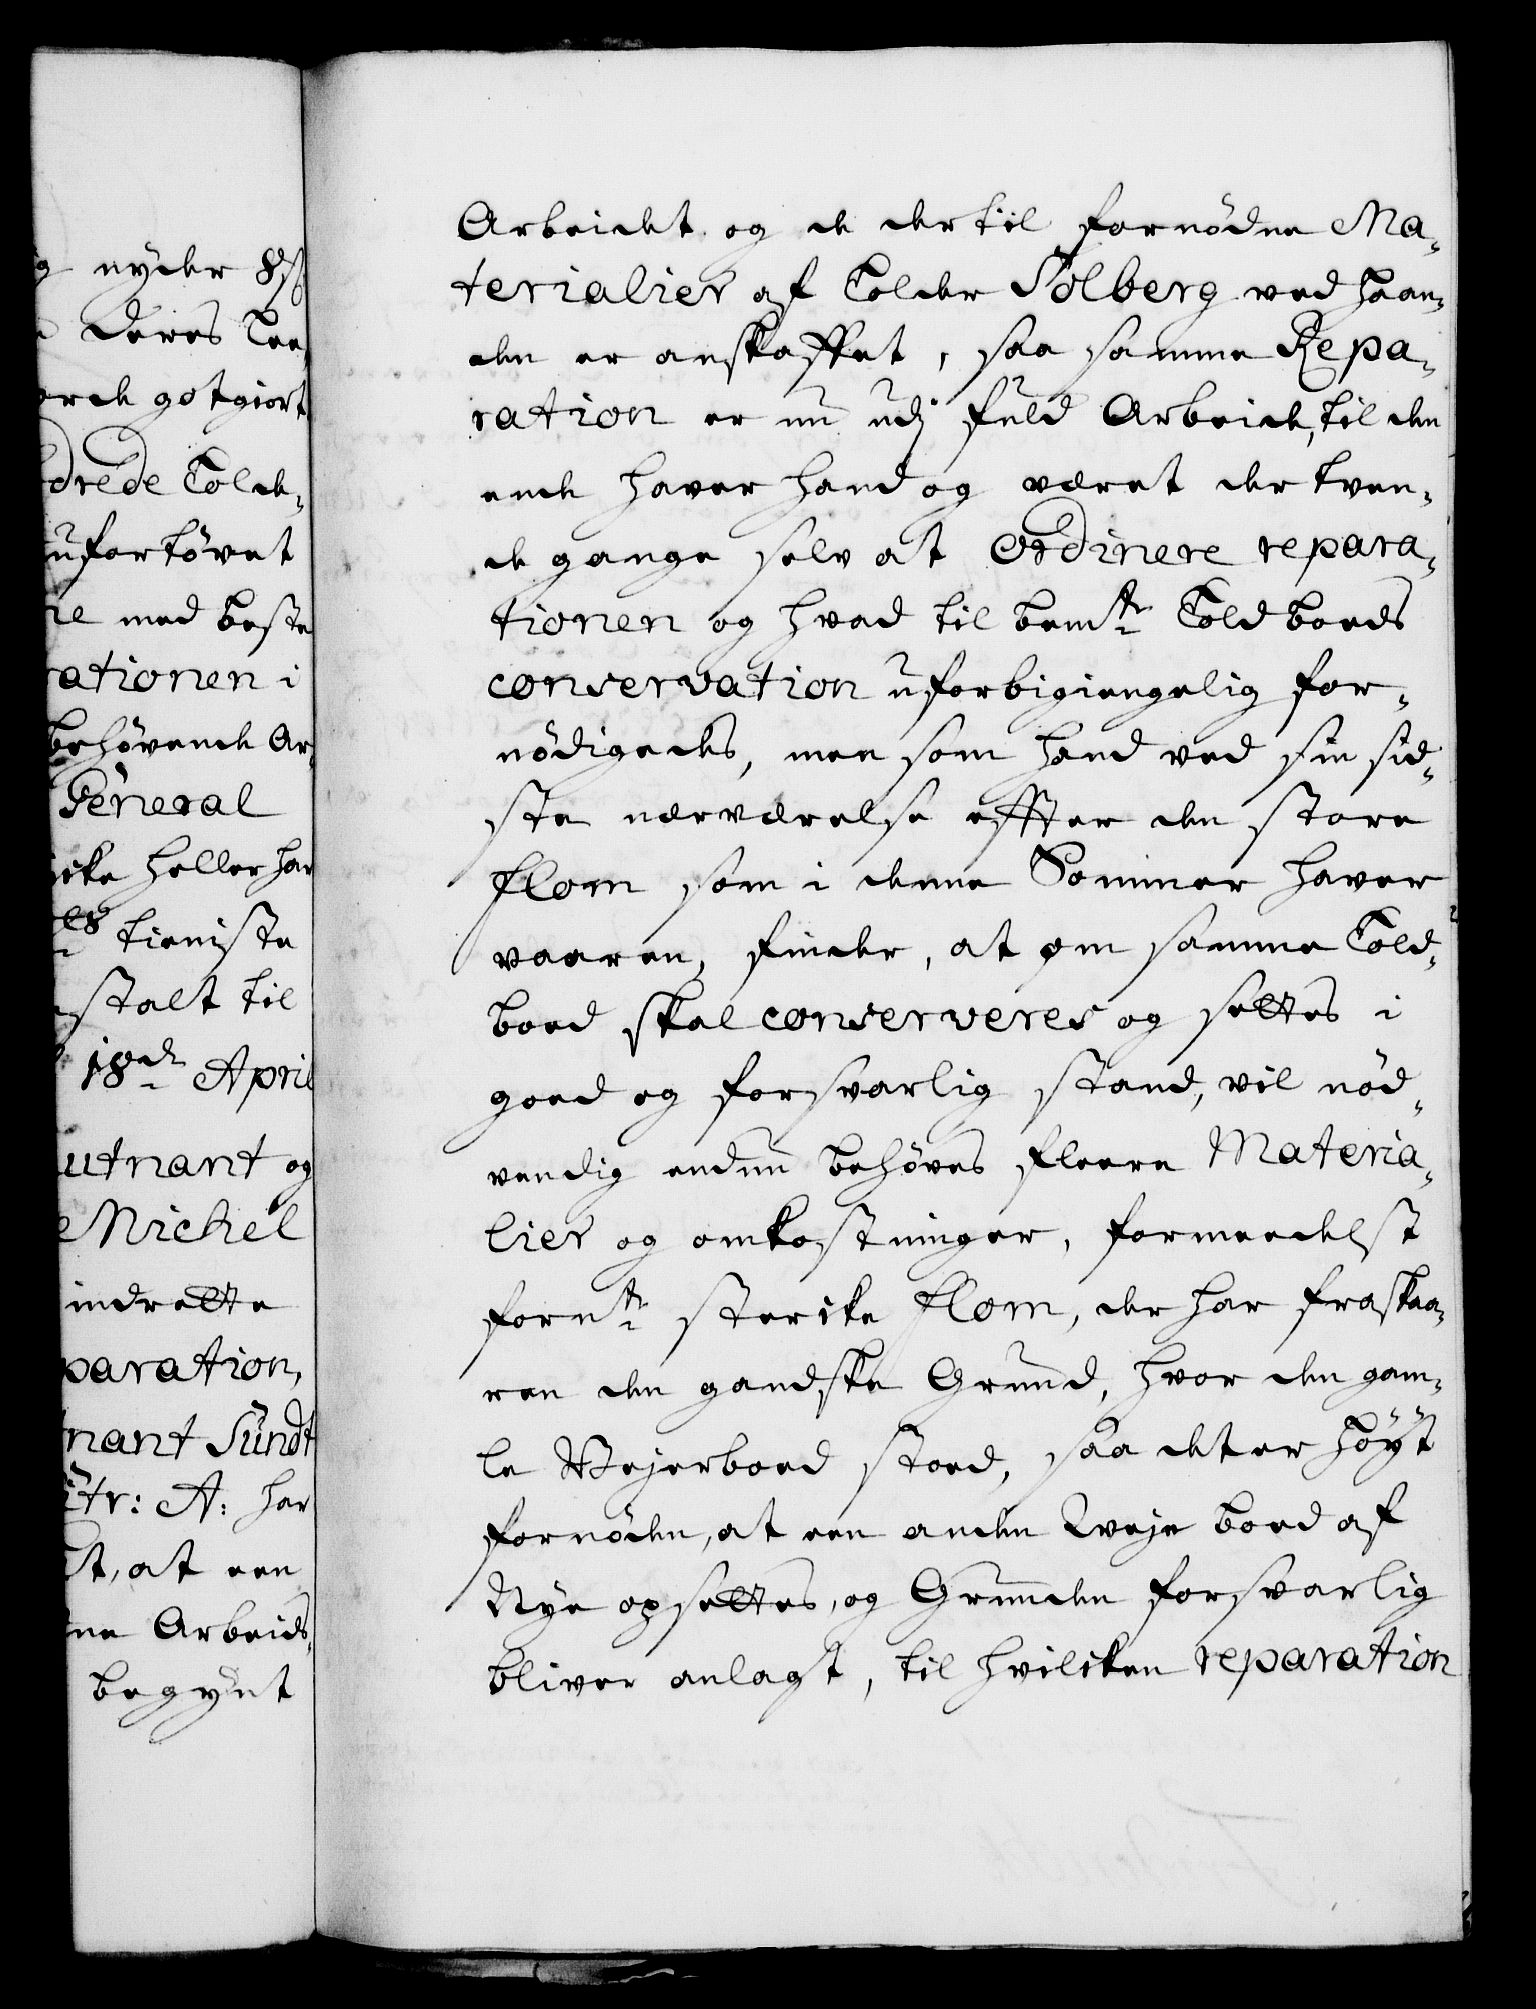 ig nyder 8 ß
deres Tee
orde gotgiort
drede Tolde-
ufortøvet
re med beste
rationen i
behøvende Ar-
General
icke heller har
tieniste
stalt til
18de April
utnant og
Michel
indrette
paration,
nant Sundt
itr: A: har
t, at een
ne Arbeids
begynt
Arbeidet og de dertil fornødne Ma-
terialier af Tolder Solberg ved haan-
den er anskaffet, saa samme Repa-
ration er nu udj fuld Arbeide, til den
ende haver hand og været der tven-
de gange selv at ordinere repara-
tionen og hvad til bemte Toldboeds
conservation uforbigiengelig for-
nødigedes, men som hand ved sin sid-
ste nerværelse effter den store
flom som i denne Sommer haver
vaaren, finder, at om samme Told-
boed skal conserveres og settes i
goed og forsvarlig stand, vil nød-
vendig endnu behøves fleere Materia-
lier og omkostninger, formeedelst
fornte sterike flom, der har fraskaa-
ren den gandske Grund, hvor den gam-
le Wejerboed stoed, saa det er høyt
fornøden, at een anden Vejeboed af
Nye opsettes, og Grunden forsvarlig
bliver anlagt, til hvilcken reparation